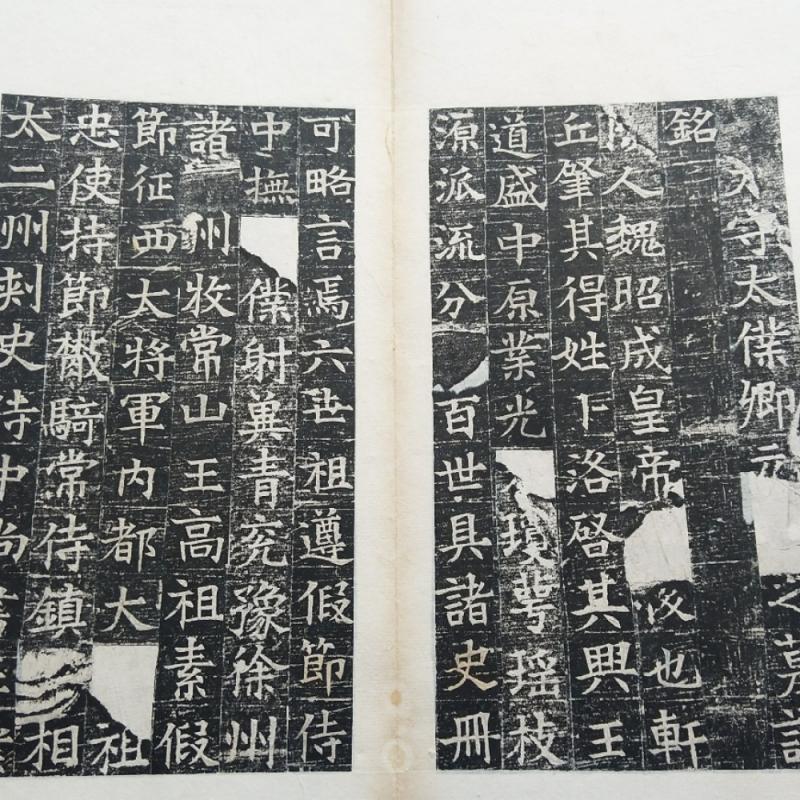 守太僕卿元之墓誌
銘
人魏昭成皇帝後也軒
丘肇其得姓卞洛啓其興王
道盛中原業光瓊萼瑤枝
源派流分百世具諸史冊
可略言焉六世祖遵假節侍
中撫僕射冀青兖豫徐州
諸州牧常山王高祖素假
節征西大將軍内都大祖
忠使持節散騎常侍鎮相
太二州刺史侍中尚書